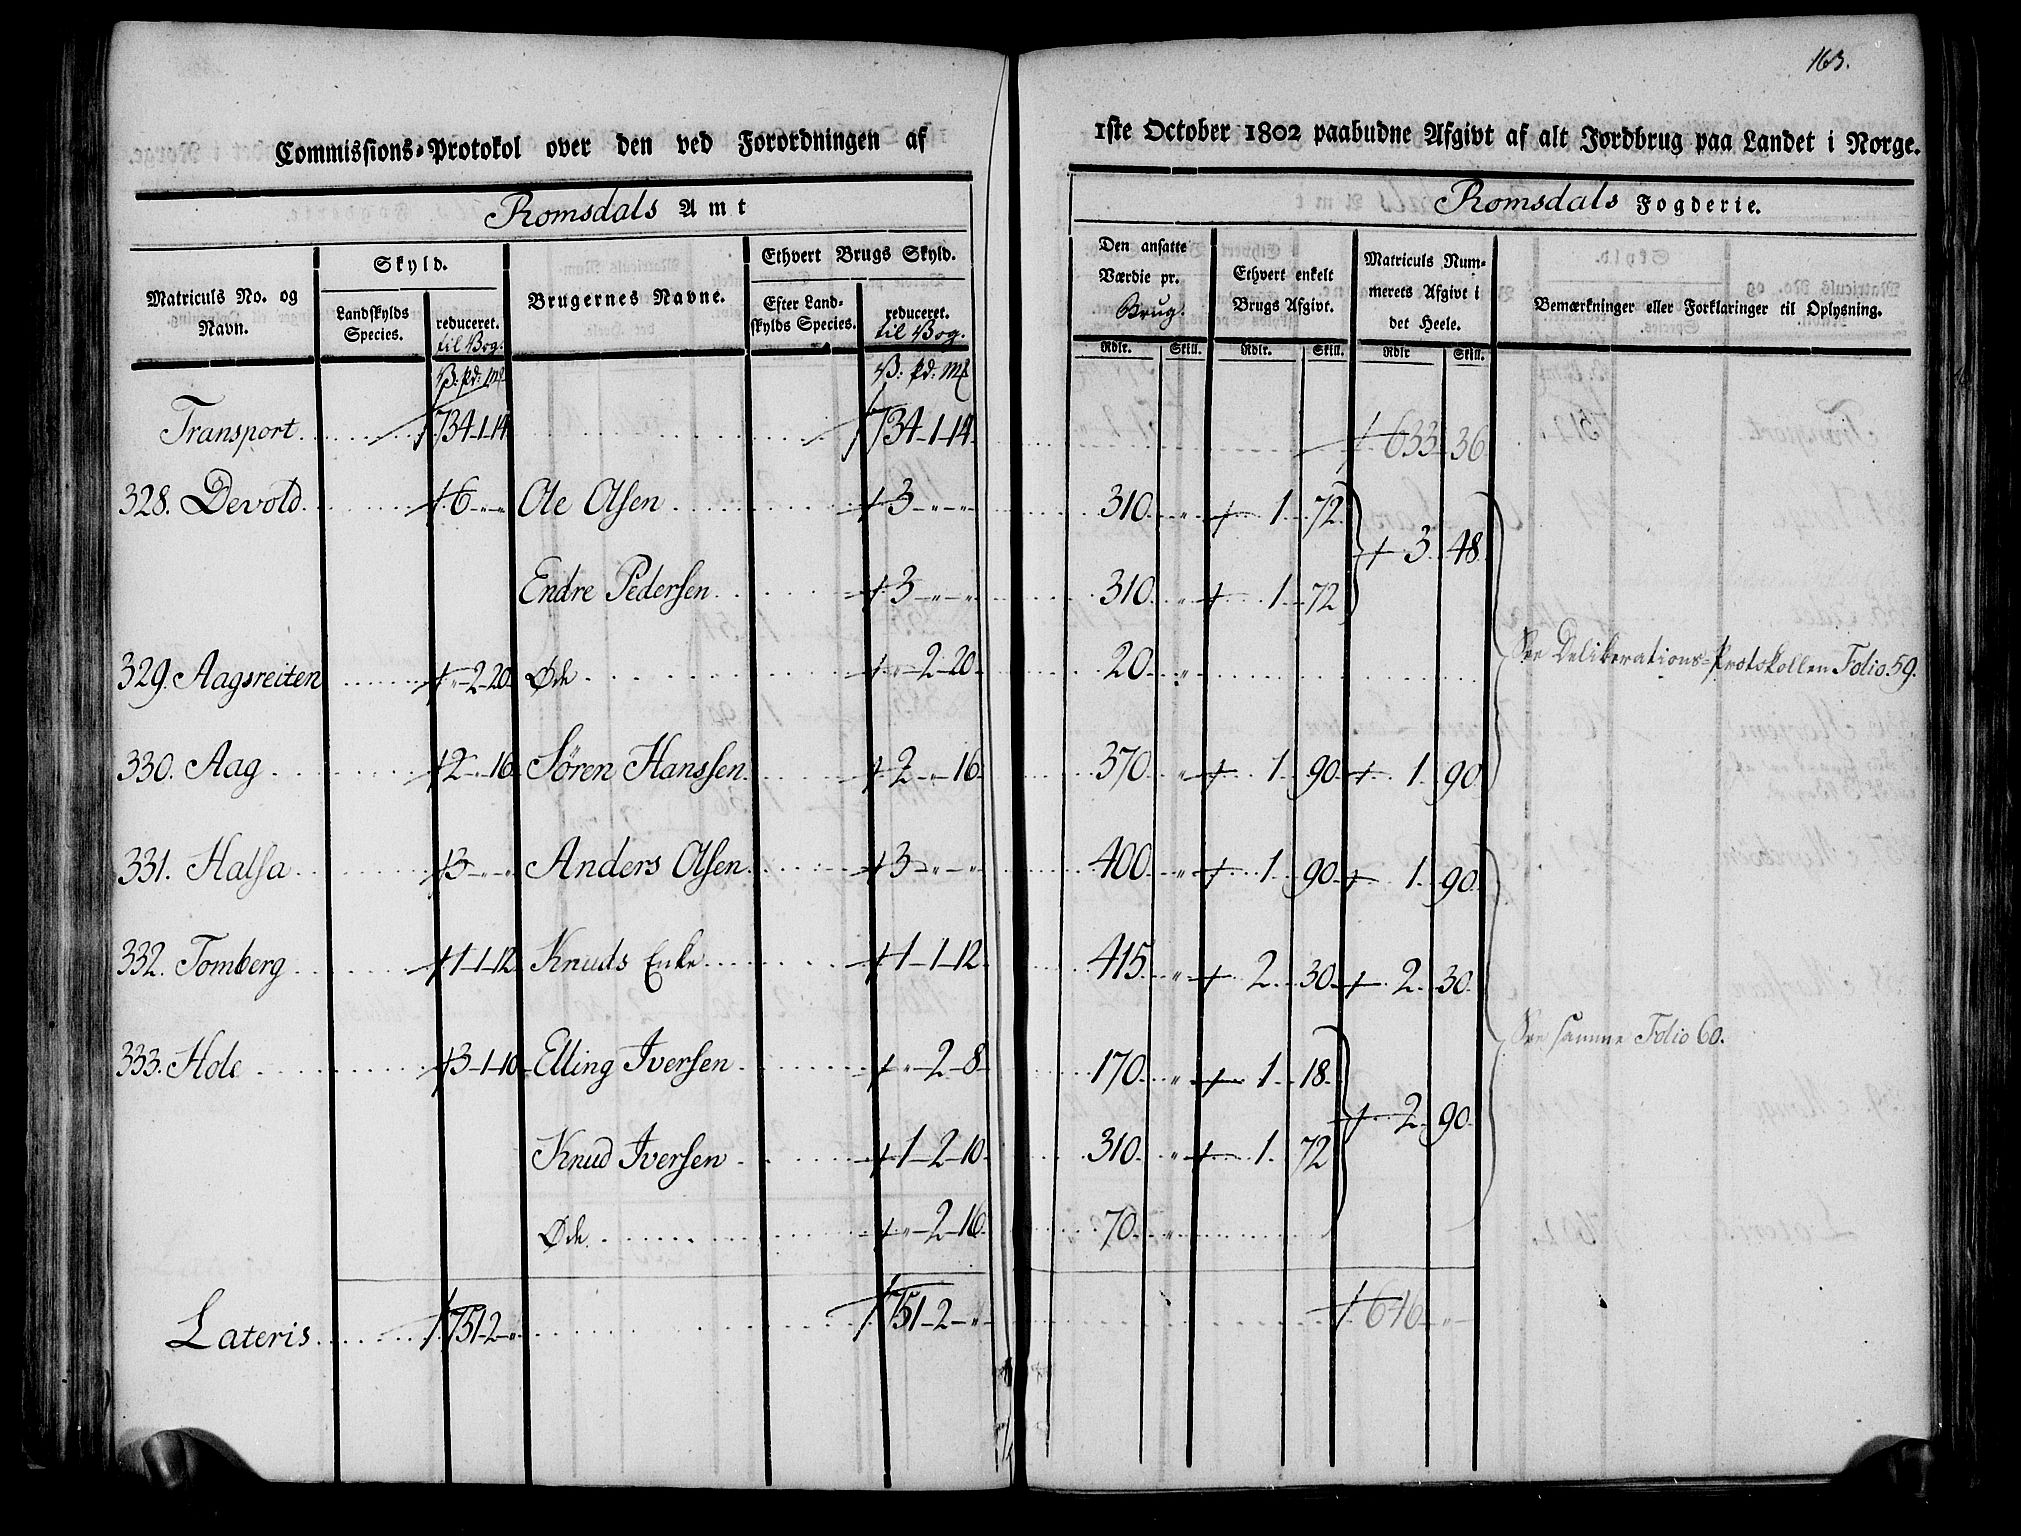 163.
Commissions-Protokol over den ved Forordningen af 1ste October 1802 paabudne Afgivt af alt Jordbrug paa Landet i Norge.
Romsdals Amt
Romsdals Fogderie.
Matriculs No. og Navn.
Skyld.
Landskylds Species.
reduceret. til Vog.
Brugernes Navne.
Ethvert Brugs Skyld.
Efter Landskylds Species.
reduceret. til Vog.
Den ansatte Værdie pr. Brug.
Ethvert enkelt Brugs Afgivt.
Matriculs Nummerets Afgivt i det Heele.
Bemærkninger eller Forklaringer til Oplysning.
V: pd: Mk V: pd: Mk Rdlr. Skill. Rdlr. Skill. Rdlr Skill.
Transport 734-1-14 734-1-14 633 36
328. Devold 6-"-" Ole Olsen 3-"-" 310 " 1 72
3 48
Endre Pedersen 3-"-" 310 " 1 72
329. Aagsreiten "-2-20 Øde "-2-20 20 "
See Deliberations-Protokollen Folio 59.
330. Aag 2-"-16 Sören Hanssen 2-"-16 370 " 1 90 1 90
331. Halsa 3-"-" Anders Olsen 3-"-" 400 " 1 90 1 90
332. Tomberg 1-1-12 Knuds Enke 1-1-12 415 " 2 30 2 30
See samme Folio 60.
333. Hole 3-1-10 Elling Iversen "-2-8 170 " 1 18
2 90
Knud Iversen 1-2-10 310 " 1 72
Øde "-2-16 70 "
Lateris 751-2-" 751-2-" 646 "